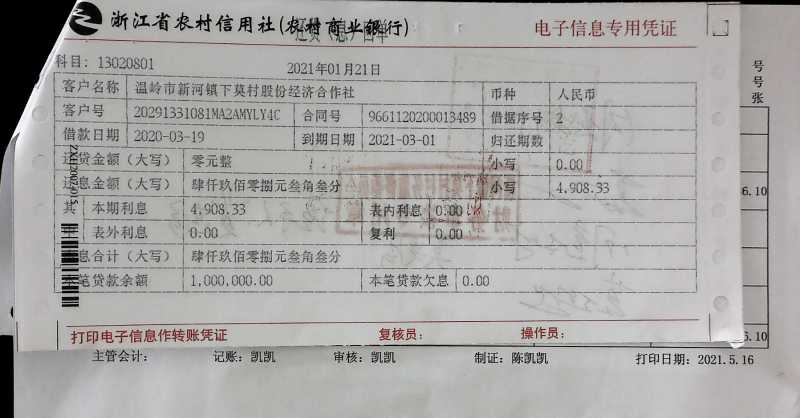 浙江省农村信用社(农村商业银行)
还贷(息)回单
电子信息专用凭证
科目: 13020801
2021年01月21日
客户名称 温岭市新河镇下莫村股份经济合作社 币种 人民币
客户号 20291331081MA2AMYLY4C 合同号 9661120200013489 借据序号 2
借款日期 2020-03-19 到期日期 2021-03-01 归还期数
还贷金额(大写) 零元整 小写 0.00
还息金额(大写) 肆仟玖佰零捌元叁角叁分 小写 4,908.33
其 本期利息 4,908.33 表内利息 0.00
表外利息 0.00 复利 0.00
息合计(大写) 肆仟玖佰零捌元叁角叁分
本笔贷款余额 1,000,000.00 本笔贷款欠息 0.00
打印电子信息作转账凭证 复核员: 操作员:
号
号
张
6.10
6.10
主管会计: 记账: 凯凯 审核: 凯凯 制证: 陈凯凯 打印日期: 2021.5.16